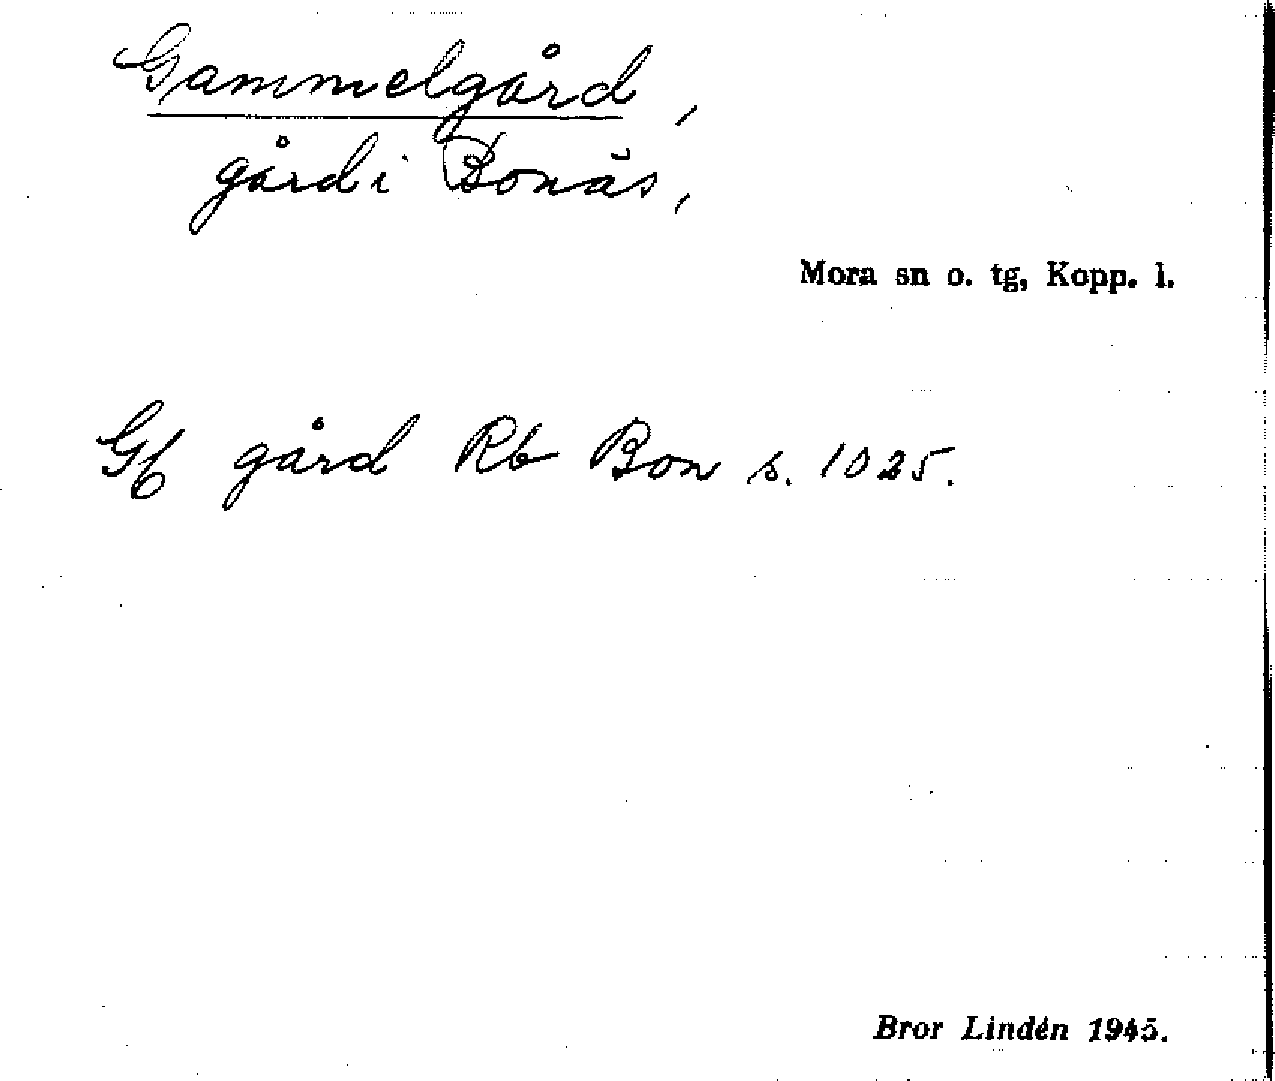 Gammelgård,
gård i Bonäs,
Mora sn o. tg, Kopp. l.
Gf gård Rb Bon s. 1025.
Bror Lindén 1945.